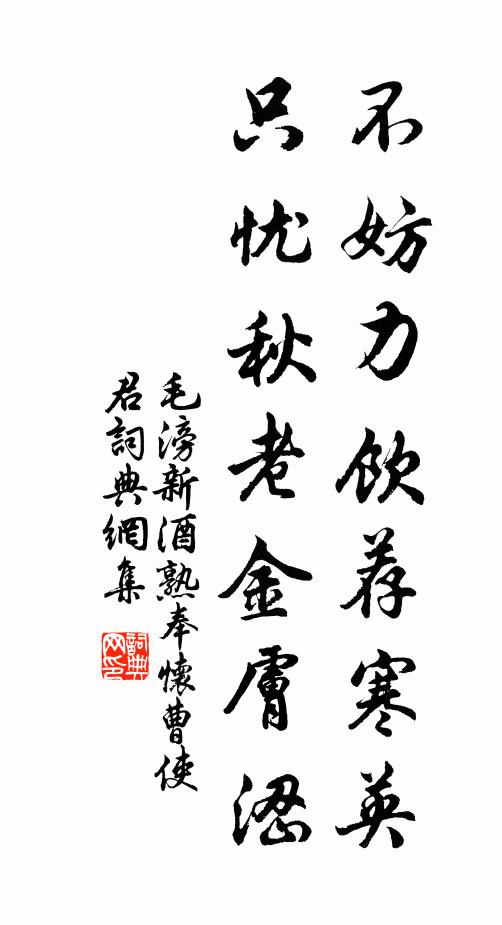 不妨力饮荐寒英
只忧秋老金肤涩
毛滂新酒熟奉懷曹使
君詞典網集
詞典網印